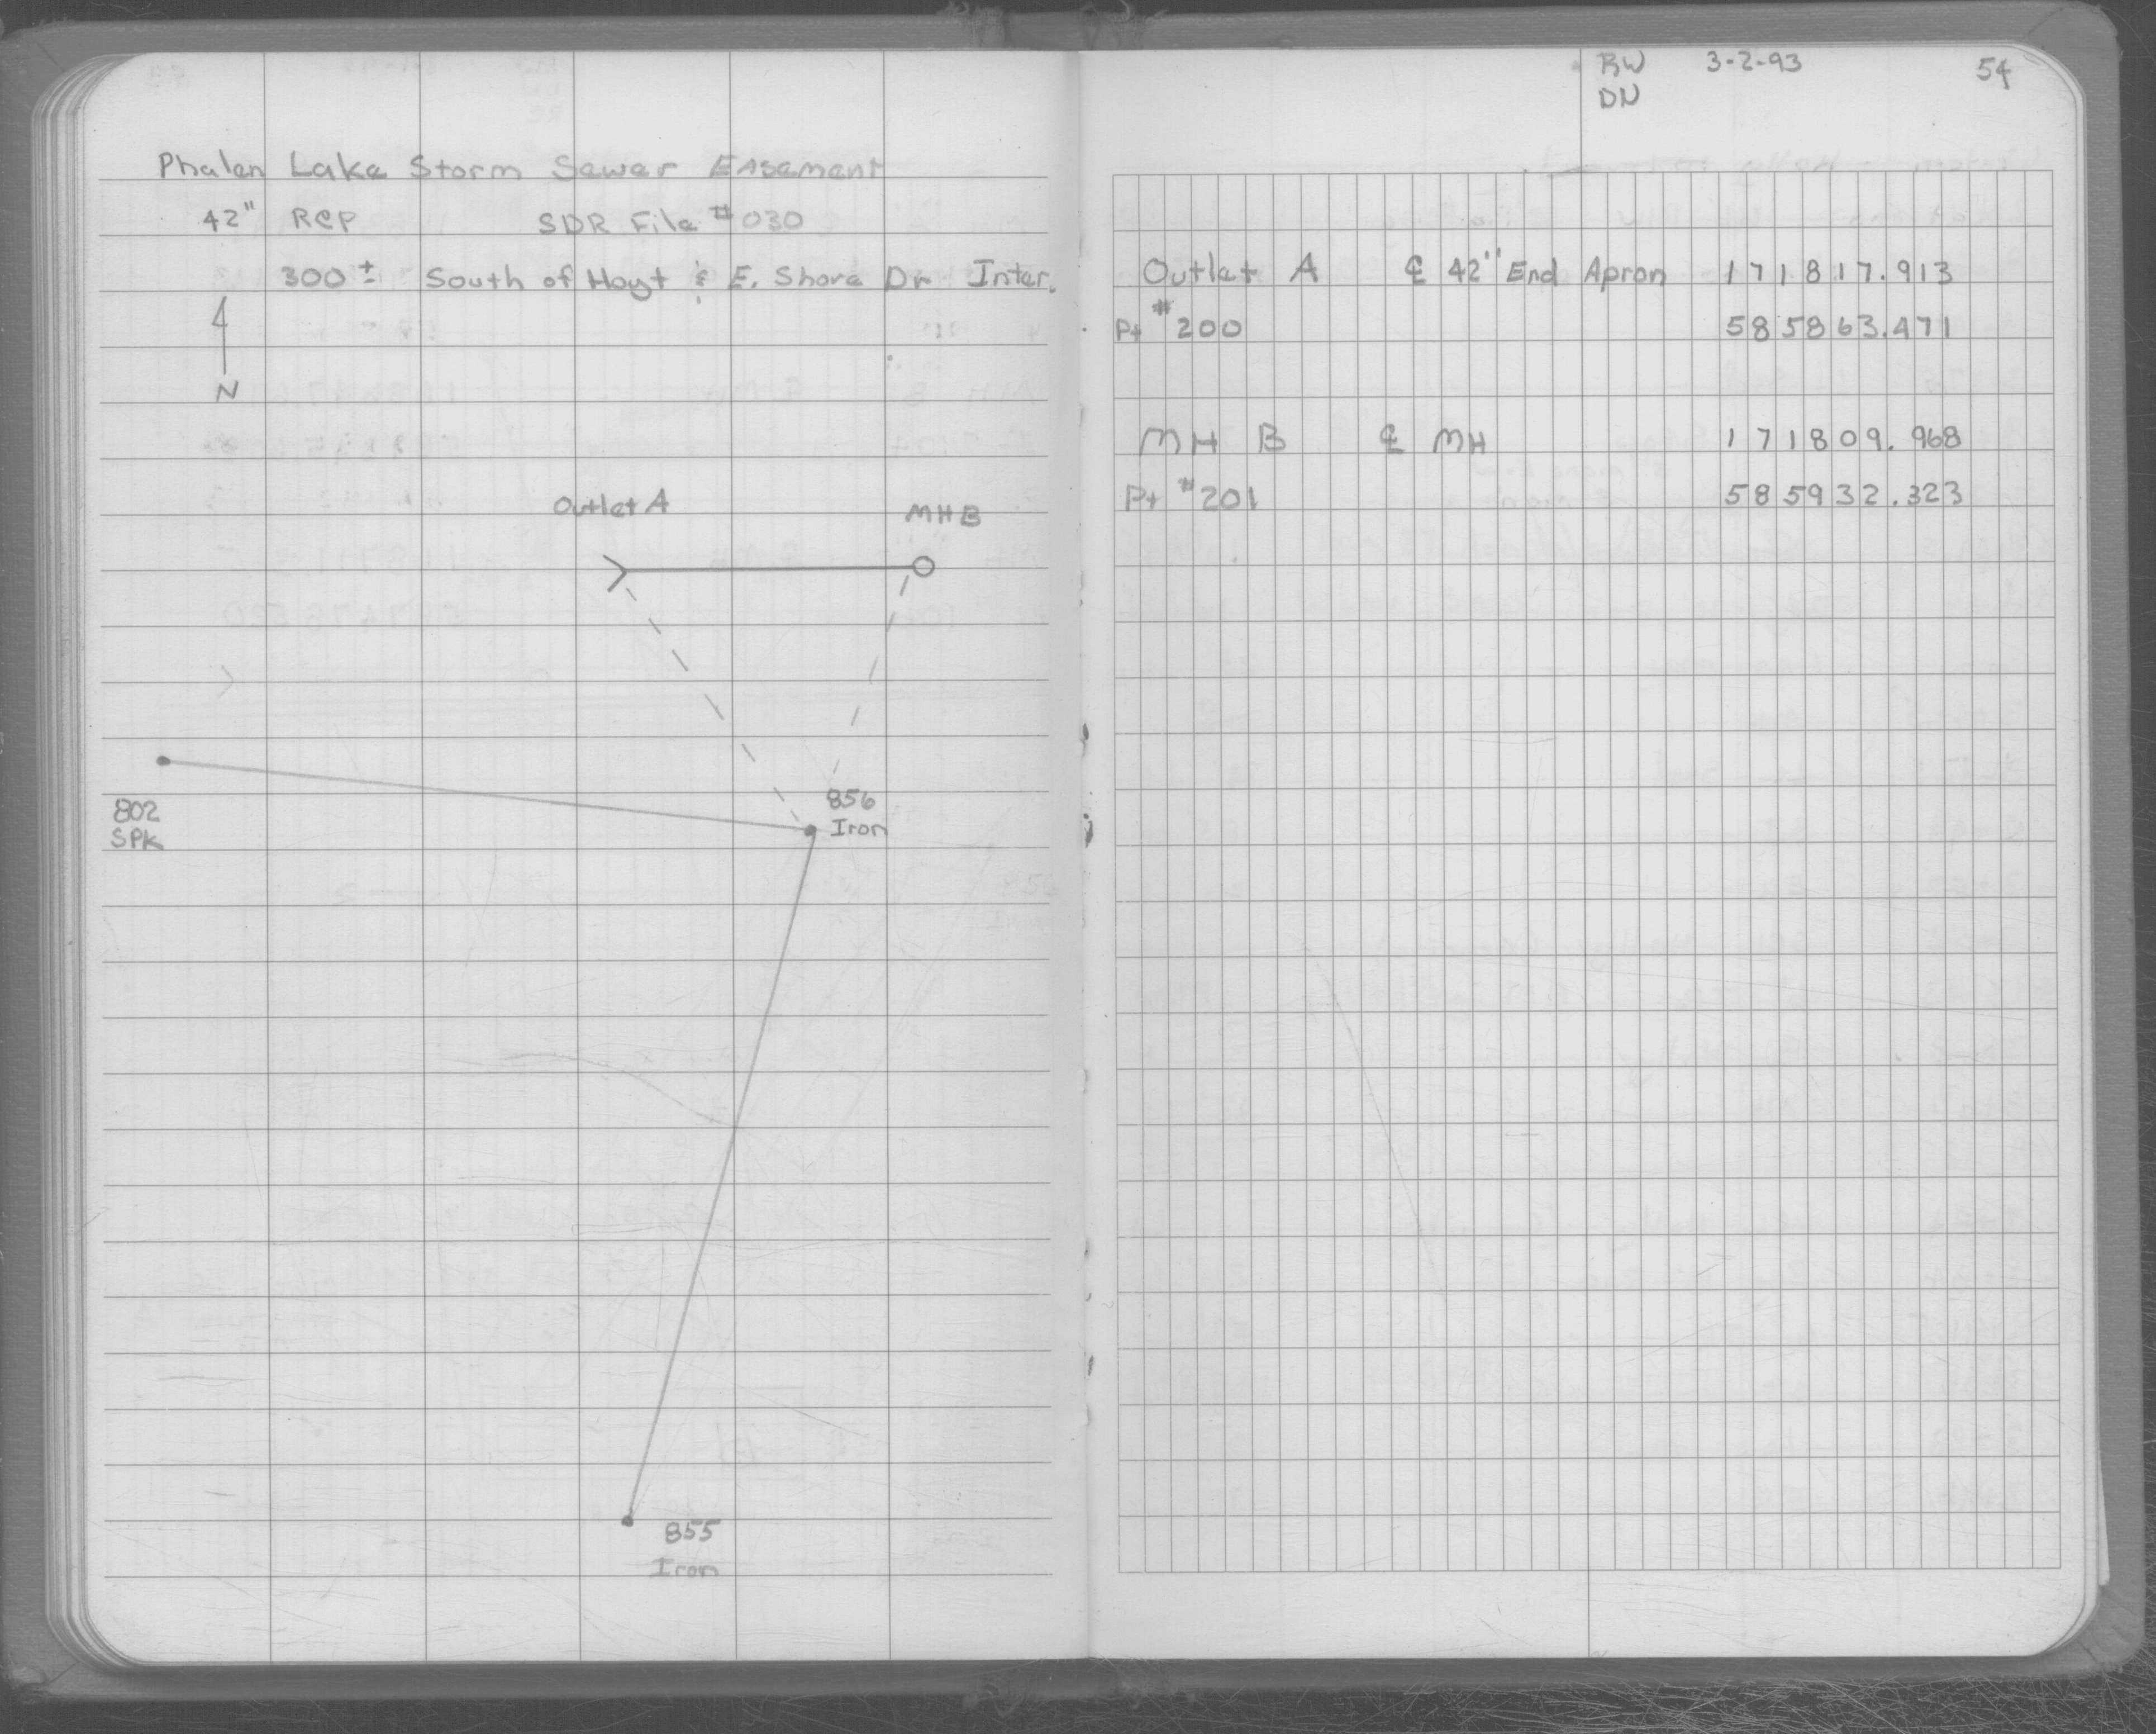 Phalen Lake Storm Sewer Easement
42" RCP SDR File #030
300± South of Hoyt & E. Shore Dr Inter.
N
Outlet A
MH B
802
SPK
856
Iron
855
Iron
RW 3-2-93 54
DN
Outlet A ℄ 42" End Apron 171817.913
Pt #200 585863.471
MH B ℄ MH 171809.968
Pt #201 585932.323